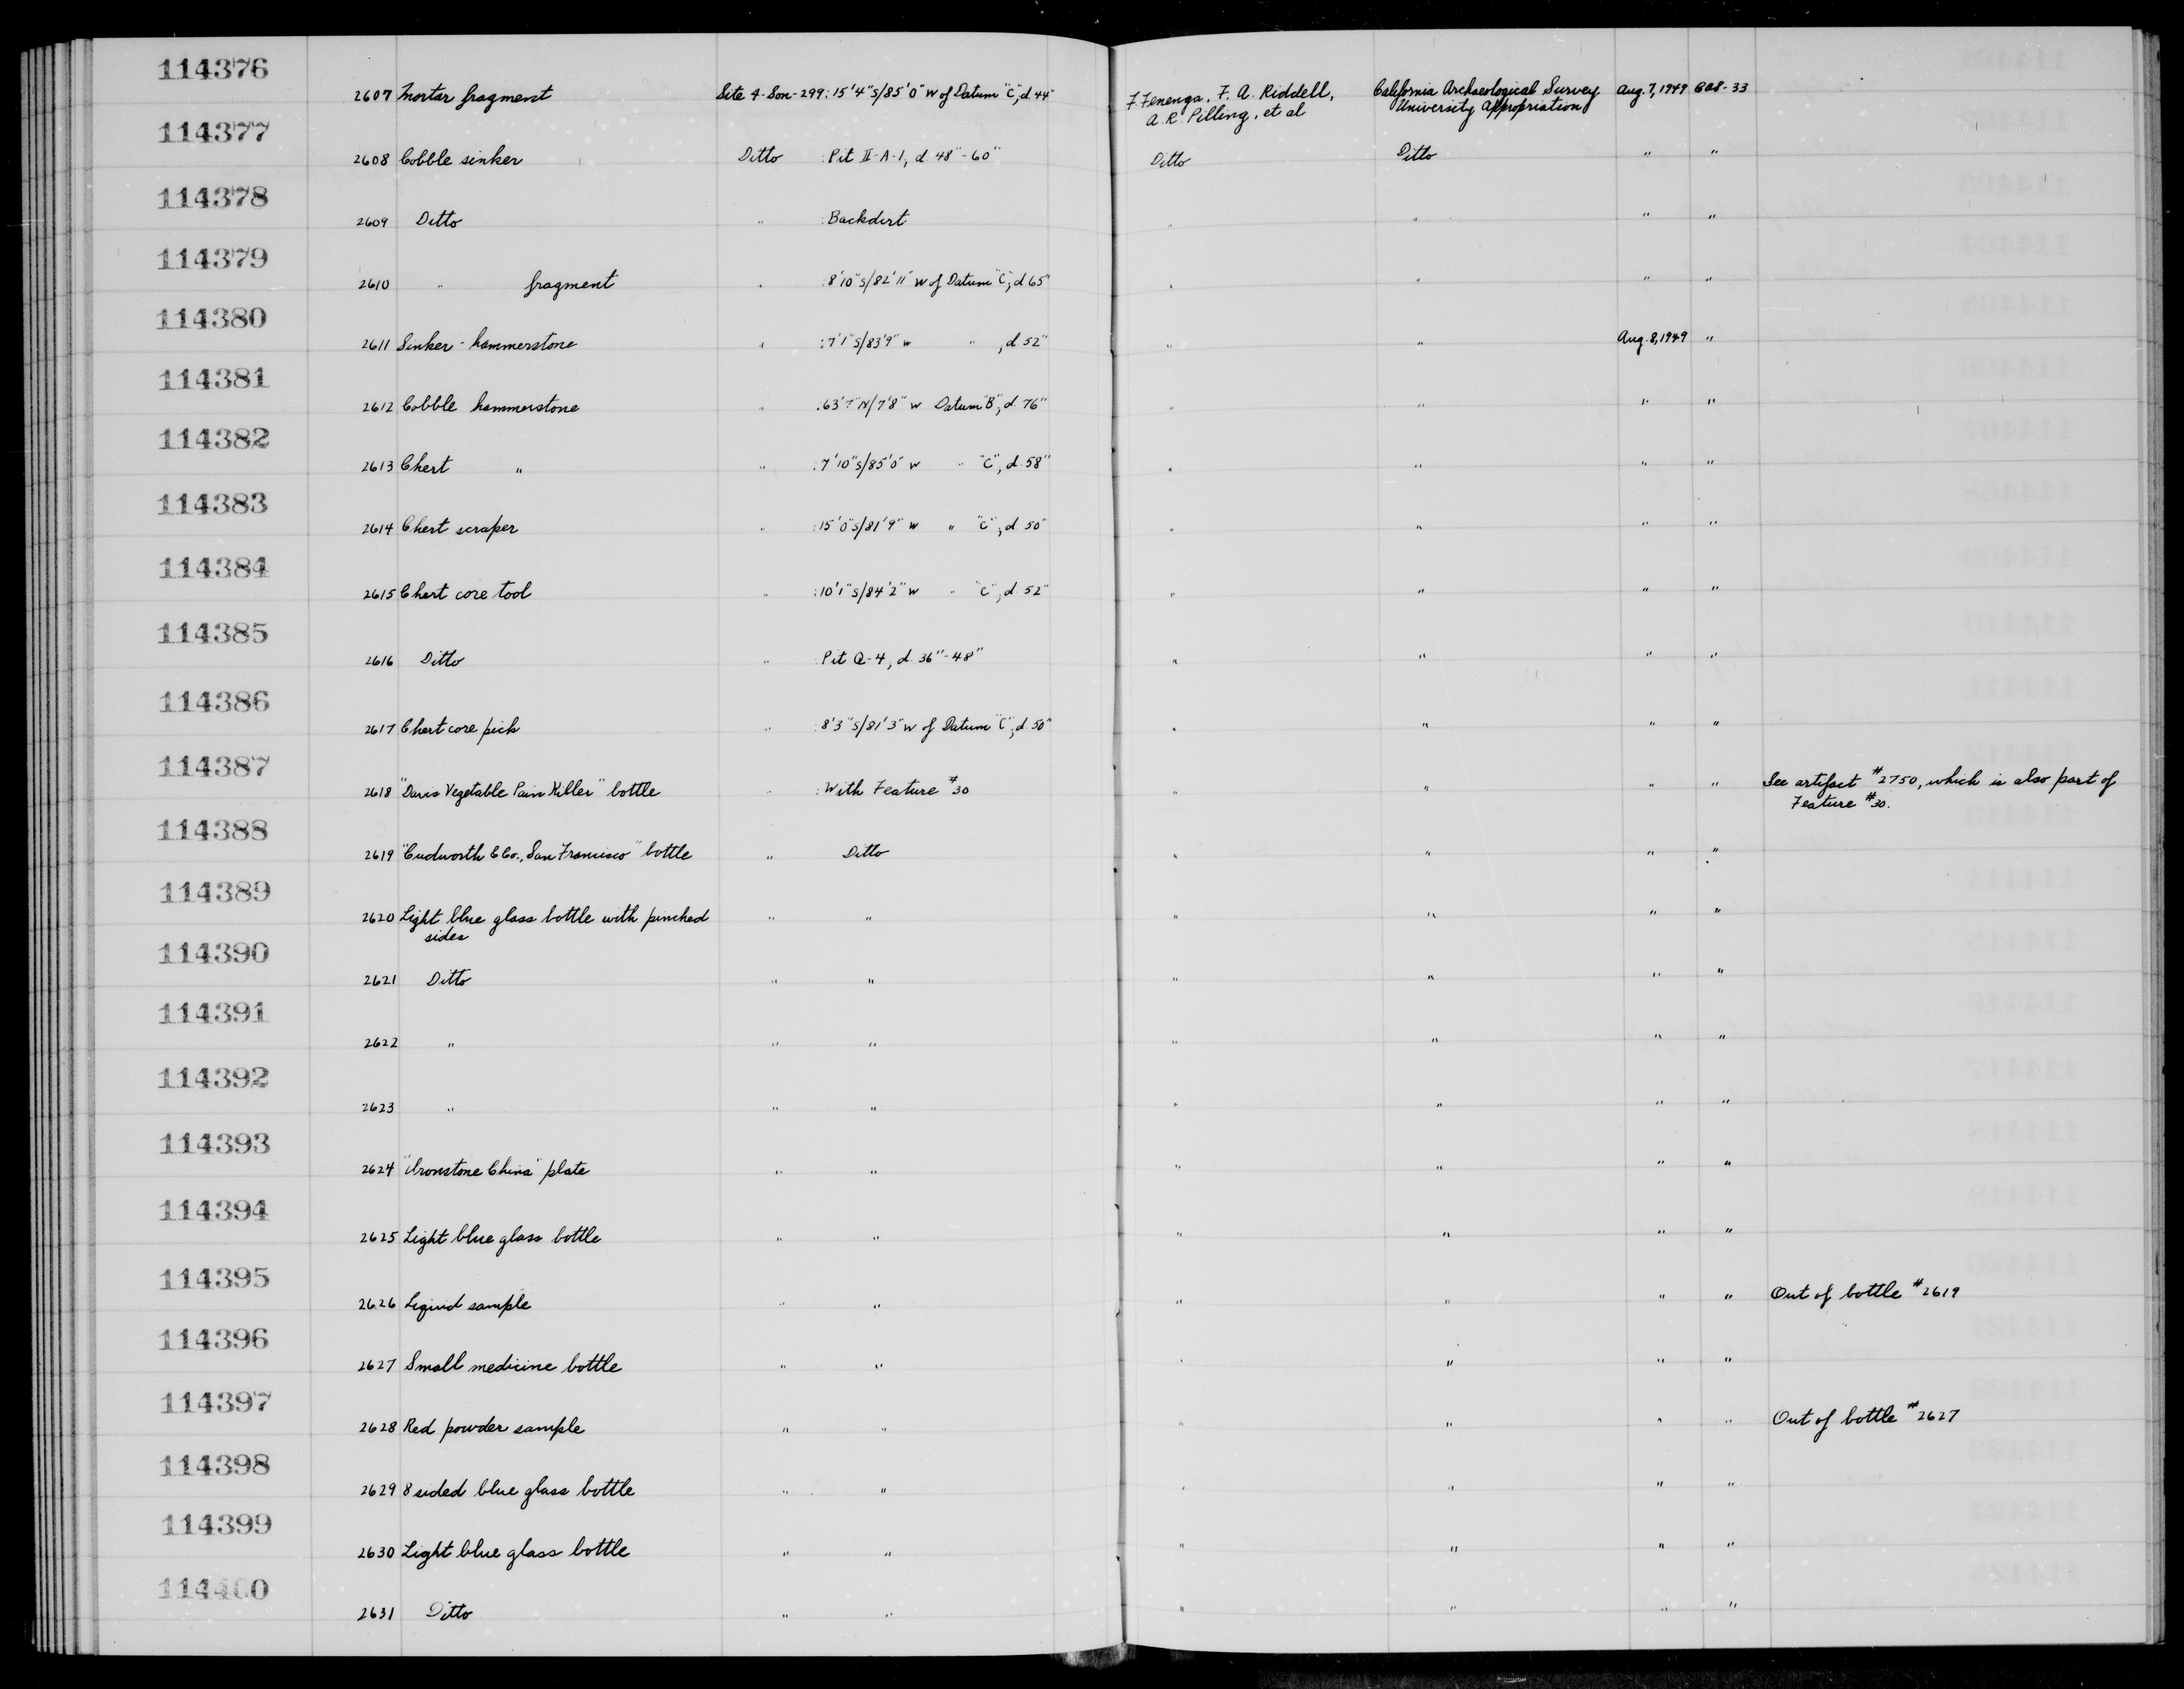 114376
2607 Mortar fragment Site 4-Son-299: 15'4"S/85'0" W of Datum "C", d. 44" F. Fenenga, F. A. Riddell, California Archaeological Survey Aug. 7, 1949 
A. R. Pilling, et al University Appropriation
114377
2608 Cobble sinker Ditto : Pit II-A-1, d. 48"-60" Ditto Ditto " "
114378
2609 Ditto " : Backdirt " " " "
114379
2610 " fragment " : 8'10"S/82'11" W of Datum "C", d. 65" " " " "
114380
2611 Sinker-hammerstone " : 7'1"S/83'9" W " , d. 52" " " Aug. 8, 1949 "
114381
2612 Cobble hammerstone " : 63'7"N/7'8" W Datum "B", d. 76" " " " "
114382
2613 Chert " " : 7'10"S/85'0" W " "C", d. 58" " " " "
114383
2614 Chert scraper " : 15'0"S/81'9" W " "C", d. 50" " " " "
114384
2615 Chert core tool " : 10'1"S/84'2" W " "C", d. 52" " " " "
114385
2616 Ditto " : Pit Q-4, d. 36"-48" " " " "
114386
2617 Chert core pick " : 8'3"S/81'3" W of Datum "C", d. 50" " " " "
114387
2618 "Davis Vegetable Pain Killer" bottle " : With Feature #30 " " " " See artifact #2750, which is also part of
Feature #30.
114388
2619 "Cudworth & Co., San Francisco" bottle " Ditto " " " "
114389
2620 Light blue glass bottle with pinched " " " " " "
sides
114390
2621 Ditto " " " " " "
114391
2622 " " " " " " "
114392
2623 " " " " " " "
114393
2624 "Ironstone China" plate " " " " " "
114394
2625 Light blue glass bottle " " " " " "
114395
2626 Liquid sample " " " " " " Out of bottle #2619
114396
2627 Small medicine bottle " " " " " "
114397
2628 Red powder sample " " " " " " Out of bottle #2627
114398
2629 8 sided blue glass bottle " " " " " "
114399
2630 Light blue glass bottle " " " " " "
114400
2631 Ditto " " " " " "